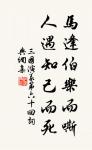 馬逢伯樂而嘶
人遇知己而死
三國演義第六十回詞
典網集